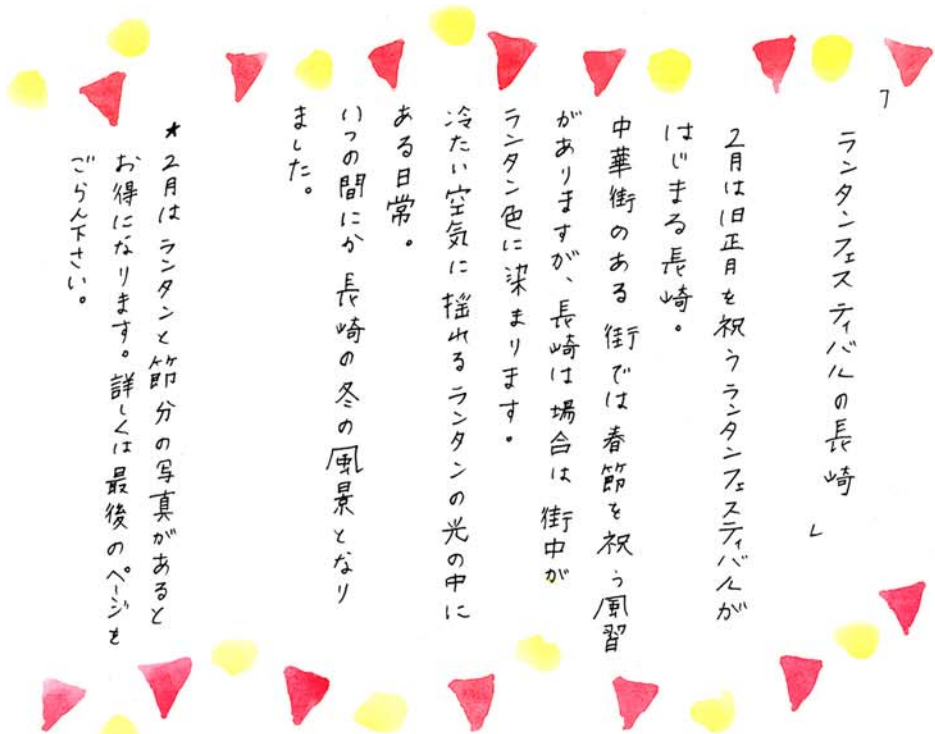 「ランタンフェスティバルの長崎」
2月は旧正月を祝うランタンフェスティバルが
はじまる長崎。
中華街のある街では春節を祝う風習
がありますが、長崎は場合は街中が
ランタン色に染まります。
冷たい空気に揺れるランタンの光の中に
ある日常。
いつの間にか長崎の冬の風景となり
ました。
★2月はランタンと節分の写真があると
お得になります。詳しくは最後のページを
ごらん下さい。